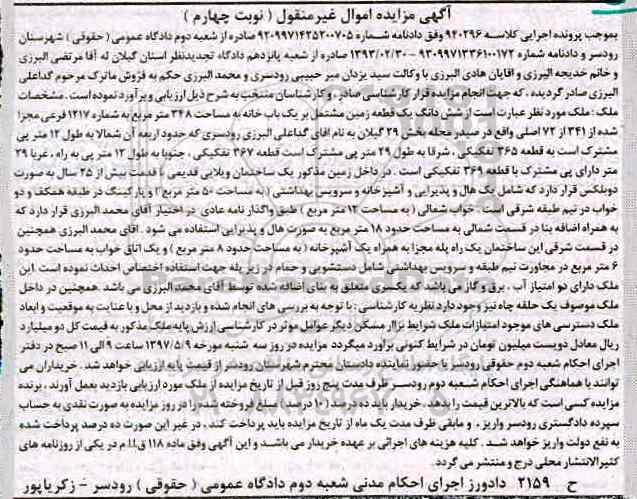 آگهی مزایده اموال غیرمنقول ( نوبت چهارم )
بموجب پرونده اجرایی کلاسه ۹۴۰۲۹۶ وفق دادنامه شماره ۹۳۰۹۹۷۱۴۲۵۲۰۰۷۰۵ صادره از شعبه دوم دادگاه عمومی ( حقوقی ) شهرستان
رودسر و دادنامه شماره ۹۳۰۹۹۷۱۳۳۶۱۰۰۱۷۲ - ۱۳۹۳/۰۲/۳۰ صادره از شعبه پانزدهم دادگاه تجدیدنظر استان گیلان له آقا مرتضی البرزی
و خانم خدیجه البرزی و اقایان هادی البرزی با وکالت سید یزدان میر حبیبی رودسری و محمد البرزی حکم به فروش ماترک مرحوم گداعلی
البرزی صادر گردیده ، که جهت انجام مزایده قرار کارشناسی صادر ، و کارشناسان منتخب به شرح ذیل ارزیابی و برآورد نموده است . مشخصات
ملک : ملک مورد نظر عبارت است از شش دانگ یک قطعه زمین مشتمل بر یک باب خانه به مساحت ۳۴۸ متر مربع به شماره ۱۲۱۷ فرعی مجزا
شده از ۳۴۱ از ۷۲ اصلی واقع در صیدر محله بخش ۲۹ گیلان به نام اقای گداعلی البرزی رودسری که حدود اربعه آن شمالا به طول ۱۲ متر پی
مشترک است به قطعه ۳۶۵ تفکیکی ، شرقا به طول ۲۹ متر پی مشترک است قطعه ۳۶۷ تفکیکی ، جنوبا به طول ۱۲ متر پی به راه ، غربا ۲۹
متر دارای پی مشترک با قطعه ۳۶۹ تفکیکی است . در داخل زمین مذکور یک ساختمان ویلایی قدیمی با قدمت بیش از ۲۵ سال به صورت
دوبلکس قرار دارد که شامل یک هال و پذیرایی و آشپزخانه و سرویس بهداشتی ( به مساحت ۵۰ متر مربع ) و پارکینگ در طبقه همکف و دو
خواب در نیم طبقه شرقی است . خواب شمالی ( به مساحت ۱۲ متر مربع ) طبق واگذار نامه عادی در اختیار آقای محمد البرزی قرار دارد که
به همراه اضافه بنا در قسمت شمالی به مساحت حدود ۱۸ متر مربع به صورت هال و پذیرایی استفاده می شود . اقای محمد البرزی همچنین
در قسمت شرقی این ساختمان یک راه پله مجزا به همراه یک آشپزخانه ( به مساحت حدود ۸ متر مربع ) و یک اتاق خواب به مساحت حدود
۶ متر مربع در مجاورت نیم طبقه و سرویس بهداشتی شامل دستشویی و حمام در زیر پله جهت استفاده اختصاص احداث نموده است . این
ملک دارای دو امتیاز آب ، برق و گاز می باشد که یکسری متعلق به بنای اضافه شده توسط آقای محمد البرزی می باشد . همچنین در داخل
ملک موصوف یک حلقه چاه نیز وجود دارد نظریه کارشناسی : با توجه به بررسی های انجام شده و بازدید از محل و با عنایت به موقعیت و ابعاد
ملک دسترسی های موجود امتیازات ملک شرایط بازار مسکن دیگر عوامل موثر در کارشناسی ارزش پایه ملک مذکور به قیمت کل دو میلیارد
ریال معادل دویست میلیون تومان در شرایط کنونی برآورد میگردد مزایده در روز سه شنبه مورخه ۱۳۹۷/۵/۹ ساعت ۹ الی ۱۱ صبح در دفتر
اجرای احکام شعبه دوم حقوقی رودسر با حضور نماینده دادستان محترم شهرستان رودسر از قیمت پایه ارزیابی خواهد شد . خریداران می
توانند با هماهنگی اجرای احکام شعبه دوم رودسر ظرف مدت پنج روز قبل از تاریخ مزایده از ملک مورد ارزیابی بازدید بعمل آورند . برنده
مزایده کسی است که بالاترین قیمت را بدهد . خریدار باید ده درصد ( ۱۰ درصد ) مبلغ فروخته شده را در روز مزایده به صورت نقدی به حساب
سپرده دادگستری رودسر واریز ، و مابقی ظرف مدت یک ماه از تاریخ مزایده باید پرداخت کند ، در غیر این صورت ده درصد پرداخت شده
به نفع دولت واریز خواهد شد . کلیه هزینه های اجرائی بر عهده خریدار می باشد و این آگهی وفق ماده ۱۱۸ ق.ا.م در یکی از روزنامه های
کثیرالانتشار محلی درج و منتشر می گردد .
ح ۲۱۵۹ دادورز اجرای احکام مدنی شعبه دوم دادگاه عمومی ( حقوقی ) رودسر - زکریاپور